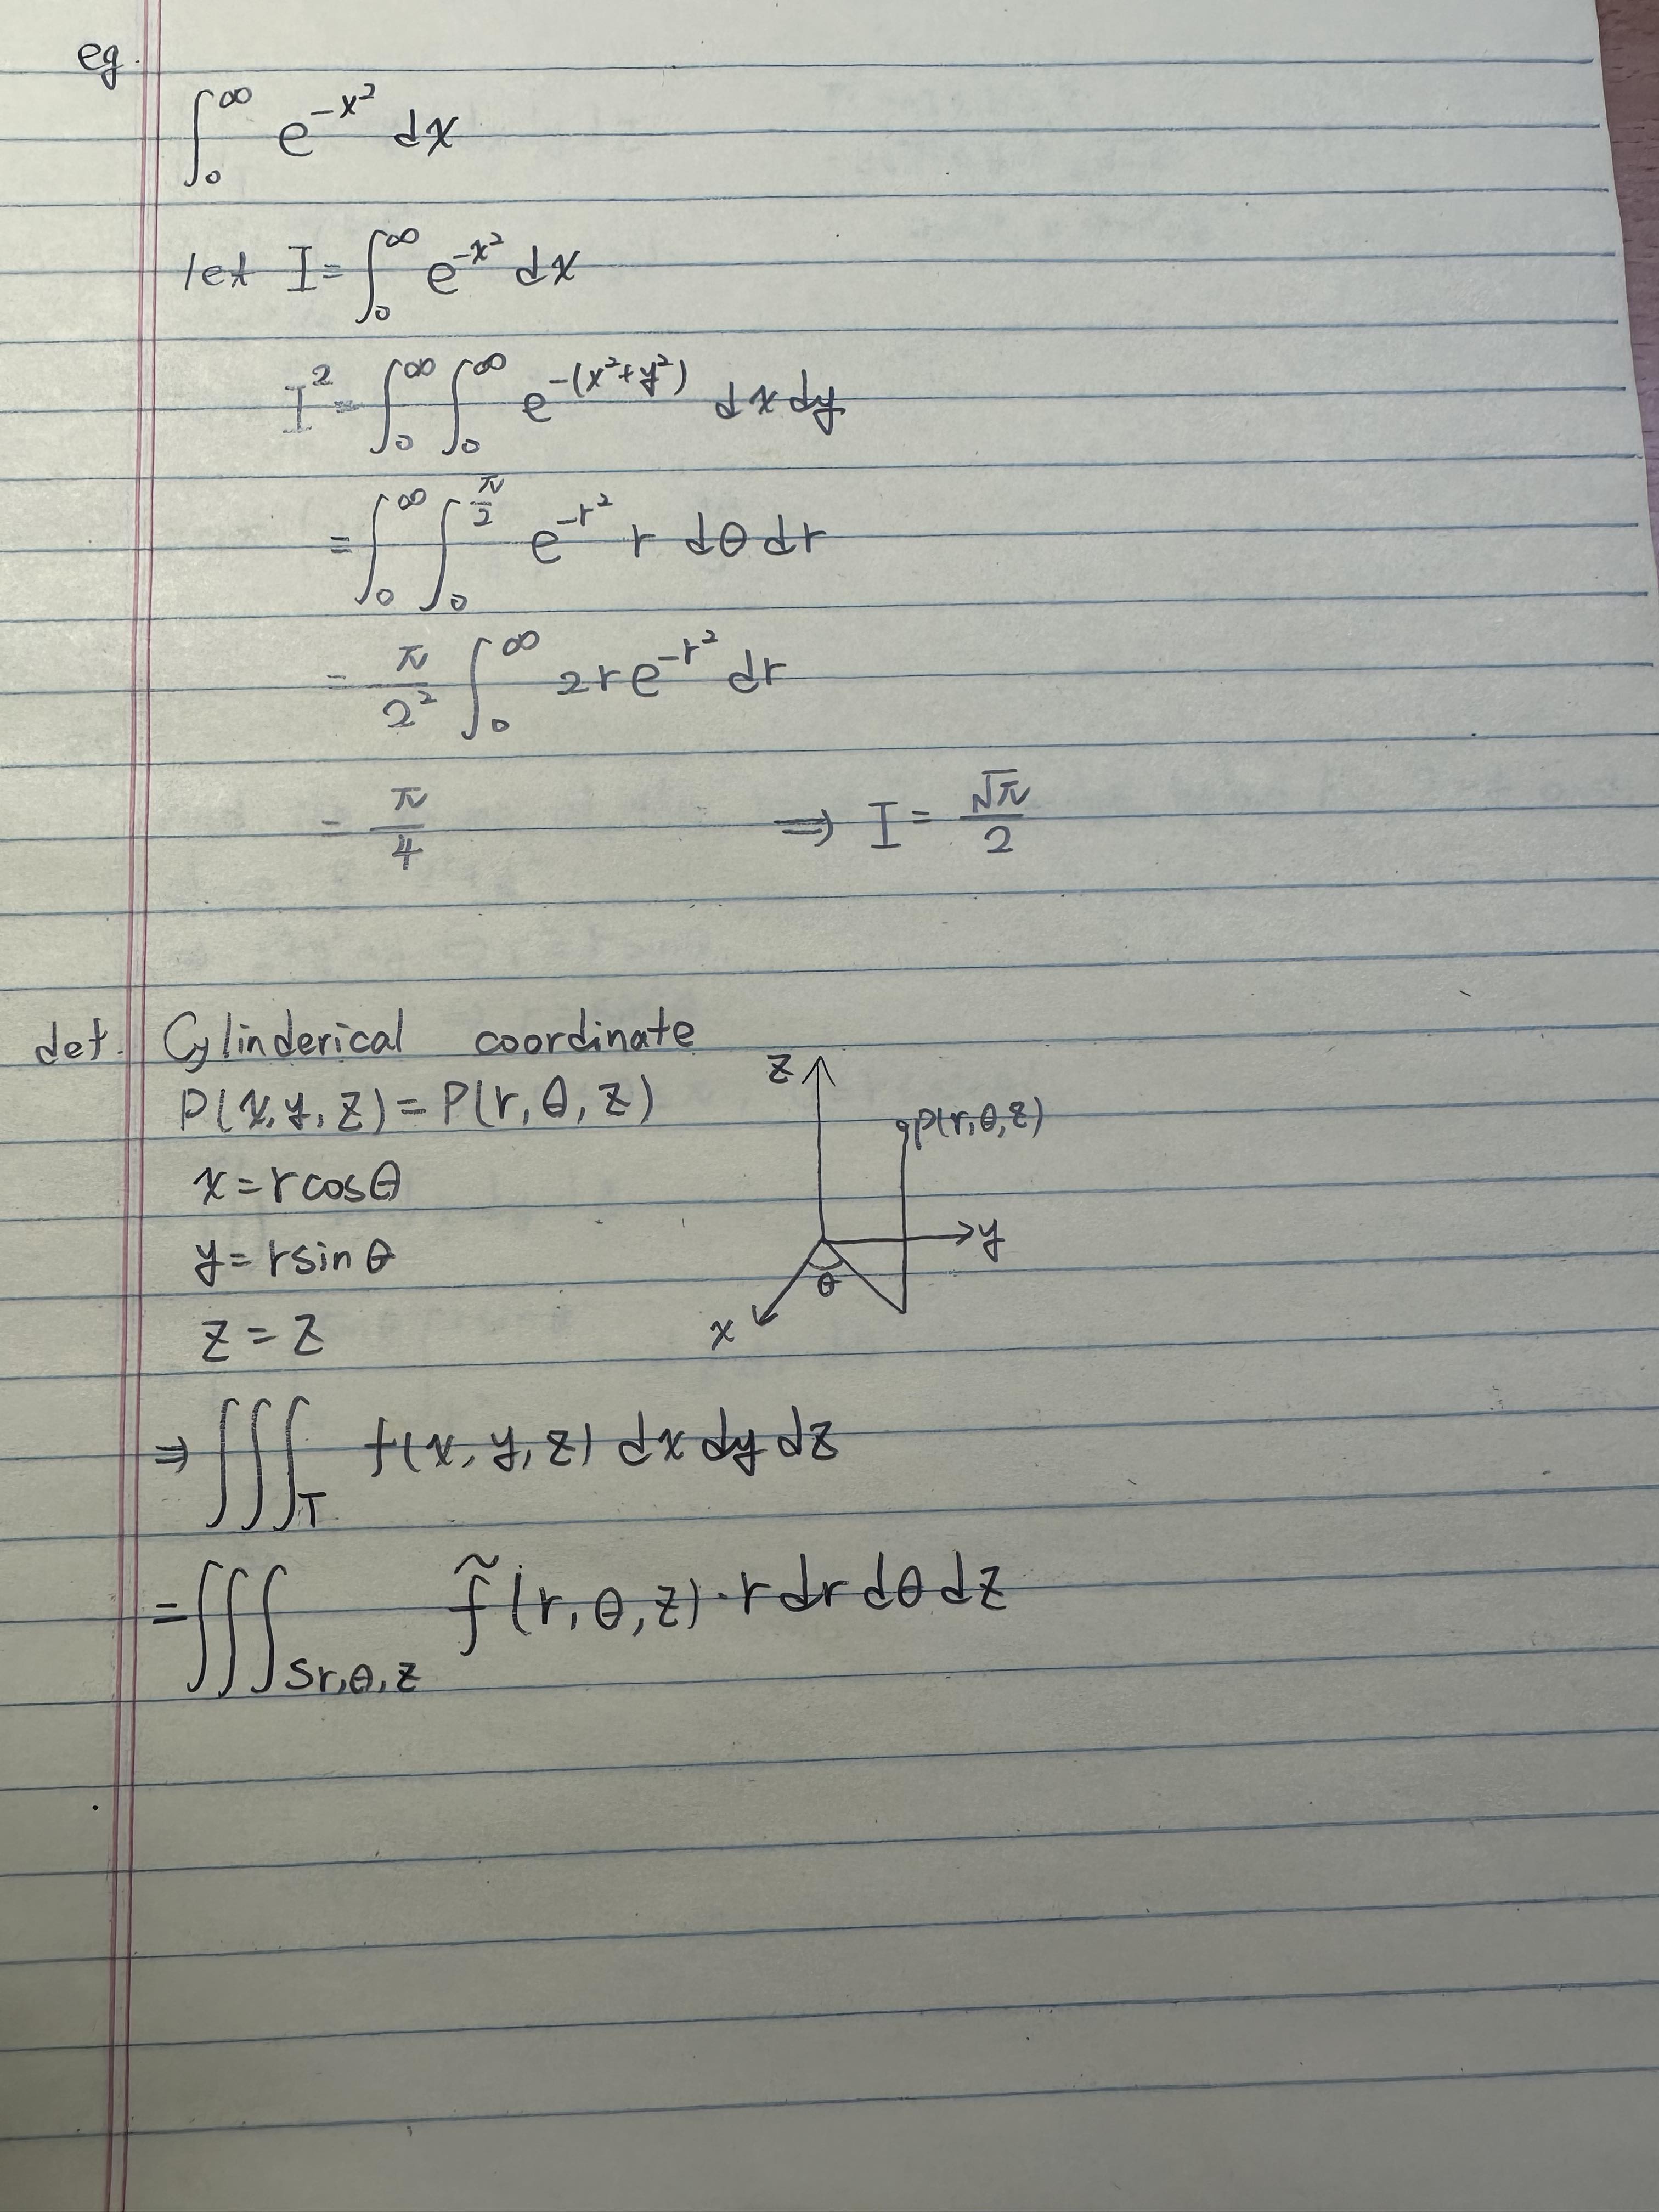 eg.
∫₀^∞ e^{-x²} dx
let I = ∫₀^∞ e^{-x²} dx
I² = ∫₀^∞ ∫₀^∞ e^{-(x²+y²)} dx dy
= ∫₀^∞ ∫₀^{π/2} e^{-r²} r dθ dr
= π/2² ∫₀^∞ 2r e^{-r²} dr
= π/4 ⇒ I = √π/2
def. Cylinderical coordinate
P(x, y, z) = P(r, θ, z)
x = r cos θ
y = r sin θ
z = z
z
P(r, θ, z)
y
θ
x
⇒ ∭_T f(x, y, z) dx dy dz
= ∭_{S r, θ, z} f̃(r, θ, z) · r dr dθ dz